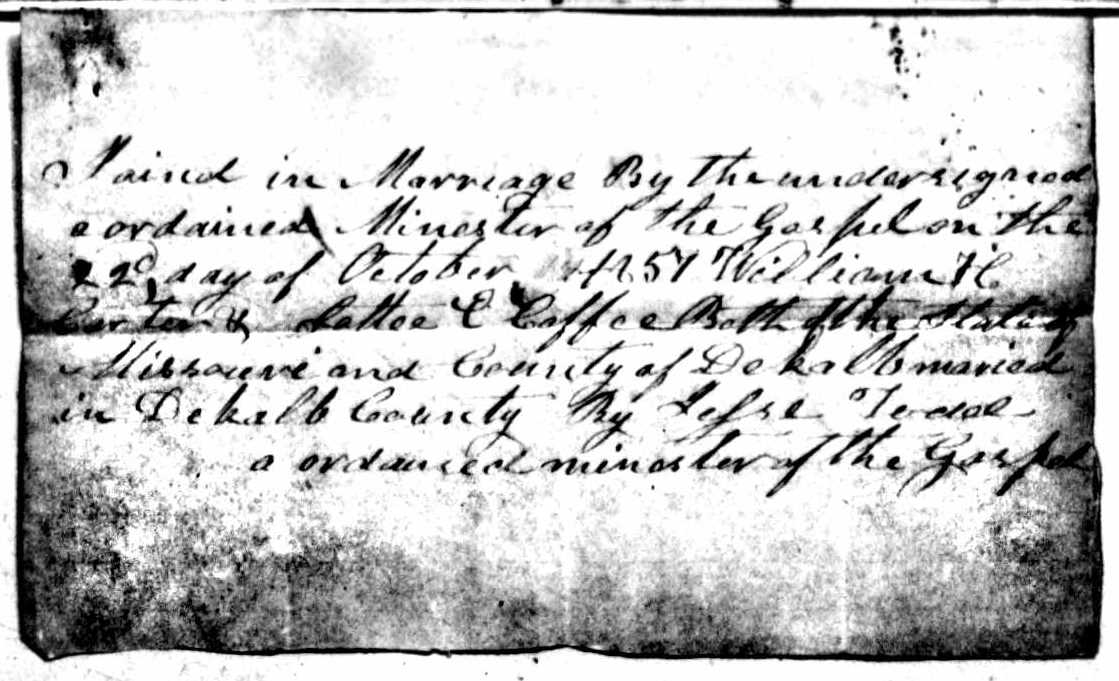 Joined in Marriage By the undersigned
a ordained Minester of the Gospel on the
22d day of October 1857 William H
Carter & Lettee C Coffee Both of the State of
Missouri and County of Dekalb maried
in Dekalb County By Jesse Todd
a ordained minester of the Gospel